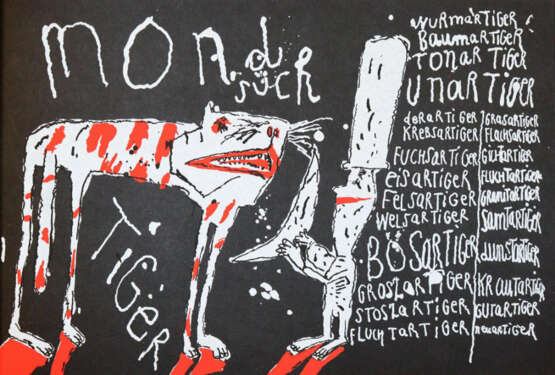 MOND
SÜCH
TiGER
WURMARTIGER
BAUMARTIGER
TONARTIGER
UNARTIGER
DERARTIGER
KREBSARTIGER
FUCHSARTIGER
EISARTIGER
FELSARTIGER
WELSARTIGER
BÖSARTIGER
GROSZARTIGER
STOSZARTIGER
FLUCHTARTIGER
GRASARTIGER
FLACHSARTIGER
GLUTARTIGER
FLUCHTARTIGER
GRANITARTIGER
SAMTARTIGER
DUNSTARTIGER
KRAUTARTIGER
GUTARTIGER
NEUARTIGER